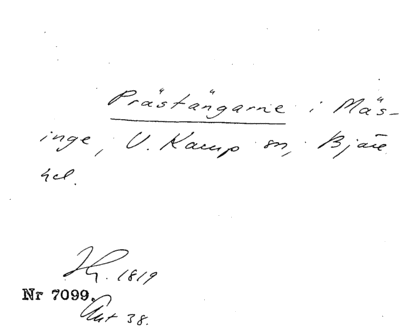 Prästängarne i Mäs-
inge, V. Karup sn, Bjäre
hd.
H. 1819
Nr 7099.
Akt 38.